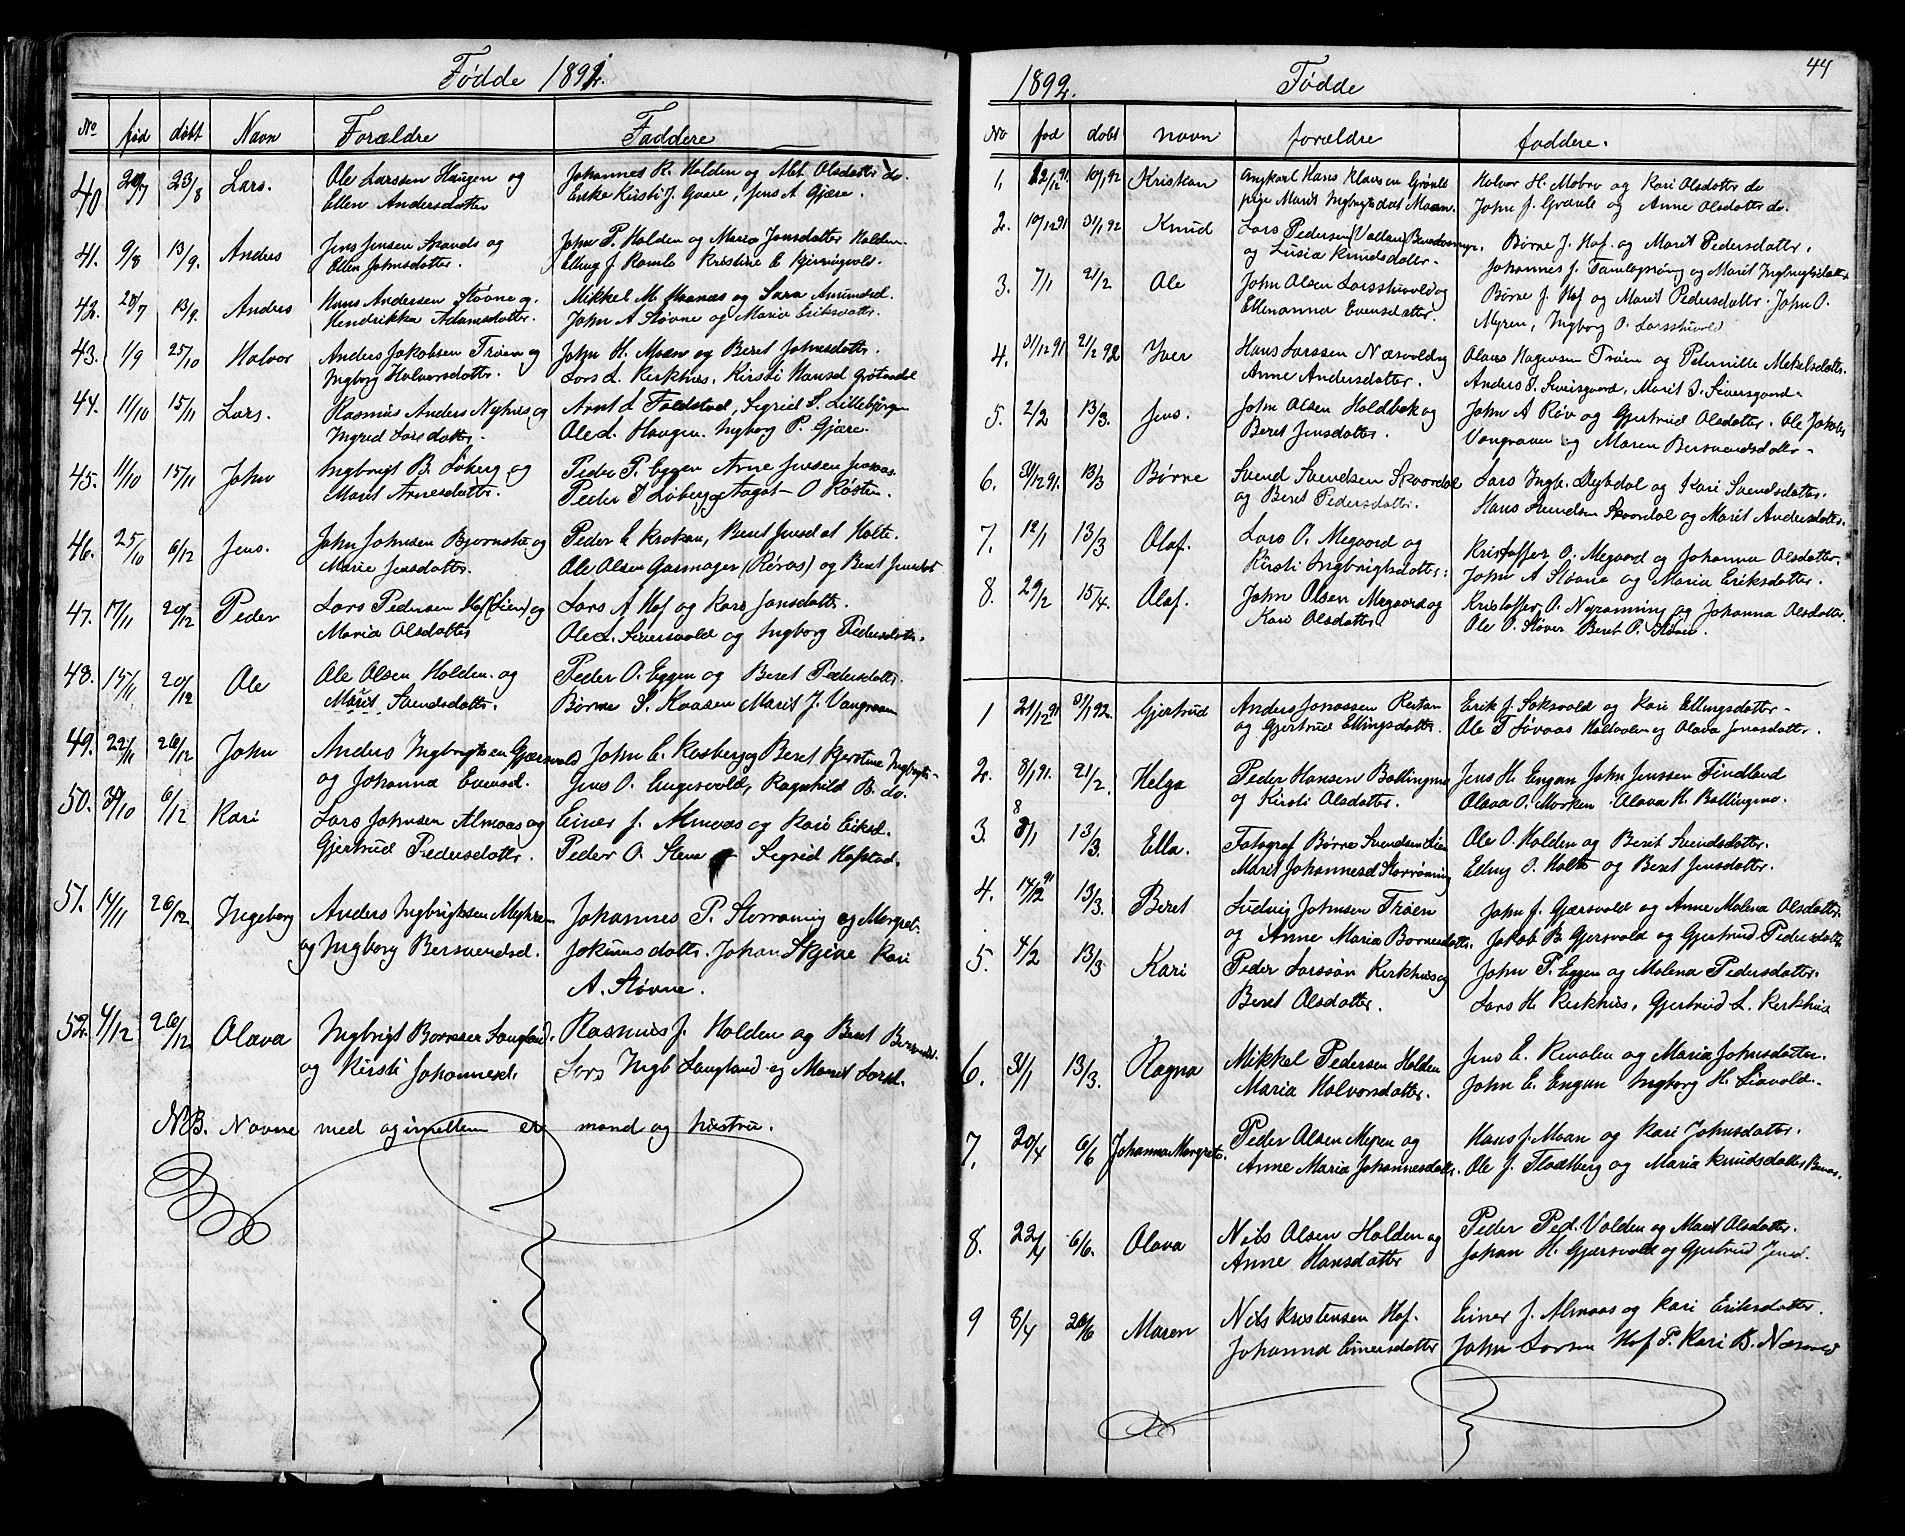 Fødde 1891.
No født døbt Navn Forældre Faddere
40 20/7 23/8 Lars. Ole Larssen Haugen og Johannes R. Holden og Alet Olsdatter do.
Ellen Andersdatter Enke Kirsti J. Gaare, Jens A. Gjære.
41. 9/8 13/9. Anders Jens Jensen og John P. Holden og Maria Jonsdatter Holden
Ellen Johnsdatter. J. Ramlo Kristine E.
42. 20/7 13/9. Anders Hans Andersen Støvne og Mikkel M. og Sara Amundsd.
Hendrikka Adamsdatter. John A Støvne og Maria Eriksdatter.
43. 1/9 25/10 Halvor Anders Jakobsen Trøen og John H. Moen og Beret Johnsdatter.
Ingborg Halvorsdatter. Lars L. Kirkhus, Kirsti Hansd Grøtaadal
44. 11/10 15/11 Lars. Rasmus Anders Nyhus og Arnt L. Foldstad, Sigrid S. Lillebjørgen
Ingrid Larsdatter. Ole L. Haugen. Ingborg P. Gjære
45. 11/10 15/11 John Ingbrigt B. Løberg og Peder P. Eggen Arne Jensen
Marit Arnesdatter. Peder I Løberg og Aagot O Røsten.
46. 25/10 6/12 Jens. John Johnsen og Peder E Krokan, Beret Jensdat Holte.
Marie Jensdatter. Ole Olsen Gasmager (Røraas) og Beret Jensdat
47. 17/11 20/12 Peder Lars Pedersen Hof (Lien) og Lars A Hof og Kari Jonsdatter.
Maria Olsdatter Ole L. Siversvold og Ingborg Pedersdatter.
48. 15/11 20/12 Ole Ole Olsen Holden og Peder O. Eggen og Beret Pedersdatter.
Marit Svendsdatter. Børne S. Kaasen Marit J. Vangraven
49. 22/11 26/12 John Anders Ingbrigtsen Gjærsvold John E. Kosberg og Beret Kjerstine Ingbrigts-
og Johanna Evensd. Jens O. Engesvold, Ragnhild B. do.
50. 30/10 6/12 Kari Lars Johnsen Almaas og Einer J. Almaas og Kari Eriksd.
Gjertrud Pedersdatter. Peder O. Steen Sigrid Hofstad.
51. 14/11 26/12 Ingeborg Anders Ingbrigtsen og Johannes P. Storrøning og Margret
og Ingborg Bersvendsd. Jokumsdatter. Johan Skjeve Kari
A. Støvne.
52. 4/12 26/12 Olava Ingbrigt Børresen Langland Rasmus J. Holden og Beret Bersvendsd.
og Kirsti Johannesd. Lars Ingb Langland og Marit Larsd.
NB. Navne med og imellem er mand og hustru.
44
1892. Fødde
No fød døbt navn forældre faddere.
1. 12/12 91 10/1 92 Kristian ungkarl Hans Klausen Grønli Halvor H. Mobro og Kari Olsdatter do
pige Marit Ingbrigtsdat Moan. John J. Grønli og Anne Olsdatter do.
2. 10/12 91 31/1 92 Knud Lars Pedersen (Vollan) Børne J. Hof og Marit Pedersdatter.
og Lusia Knudsdatter. Johannes J. og Marit Ingbrigtsdatter
3. 7/1 21/2 Ole John Olsen Larsshusvold og Børne J. Hof og Marit Pedersdatter. John O.
Ellenanna Evensdatter. Myren, Ingborg O. Larsshusvold
4. 31/12 91 21/2 92 Iver Hans Larssen Næsvold og Olaus Hagensen Trøen og Peternille Mekelsdatter.
Anne Andersdatter. Anders I. Sivrisgaard, Marit I. Siversgaard
5. 2/2 13/3. Jens. John Olsen Holdbek og John A Røv og Gjertrud Olsdatter. Ole Jakobs
Beret Jensdatter. Vangraven og Maren Bersvendsdatter
6. 30/12 91. 13/3 Børne Svend Svendsen Skaardal Lars Ingb. Dybdal og Kari Svendsdatter.
og Beret Pedersdatter. Hans Svendsen Skaardal og Marit Andersdatter.
7. 12/1 13/3 Olaf. Lars O. Megaard og Kristoffer O. Megaard og Johanna Olsdatter.
Kirsti Ingbrigtsdatter. John A Støvne og Maria Eriksdatter.
8. 29/2 15/4. Olaf. John Olsen Megaard og Kristoffer O. Nyrønning og Johanna Olsdatter.
Kari Olsdatter. Ole O. Støver Beret O. Støver.
1 21/12 91 31/1 92. Gjertrud Anders Jonassen Restan Erik J. Soksvold og Kari Ellingsdatter
og Gjertrud Ellingsdatter. Ole T Tøvaas og Olava Jonasdatter.
2. 8/1 91. 21/2. Helga Peder Hansen Bollingmo Jens H. Engan John Jenssen Findland
og Kirsti Olsdatter. Olava O. Morken Olava H. Bollingmo.
3. 8/1 8 13/3. Ella. Fotograf Børne Svendsen Lien Ole O. Holden og Berit Svendsdatter.
Marit Johannesd Storrøning Elling O. Holte og Beret Jensdatter.
4. 14/12 91 13/3. Beret Ludvig Johnsen Trøen John J. Gjærsvold og Anne Malena Olsdatter
og Anne Maria Børnesdatter. Jakob B. Gjersvold og Gjertrud Pedersdatter
5. 4/2 13/3 Kari Peder Larssøn Kirkhus og John P. Eggen og Malena Pedersdatter.
Beret Olsdatter. Lars H. Kirkhus, Gjertrud L. Kirkhus
6. 31/1 13/3. Ragna Mikkel Pedersen Holden Jens E. Renolen og Maria Johnsdatter.
Maria Halvorsdatter. John E. Engan Ingborg H. Liavold.
7. 20/4 6/6 Johanna Margrete. Peder Olsen Myren og Hans J. Moan og Kari Johnsdatter.
Anne Maria Johannesdatter. Ole J. Flodberg og Maria Knudsdatter
8. 22/4 6/6. Olava Nils Olsen Holden og Peder Ped. Volden og Marit Olsdatter.
Anne Hansdatter Johan H. Gjærsvold og Gjertrud Jensd.
9 8/4 26/6 Maren Nils Kristensen Hof. Einer J. Almaas og Kari Eriksdatter.
Johanna Einersdatter John Larsen Hof P. Kari B. Næsvold